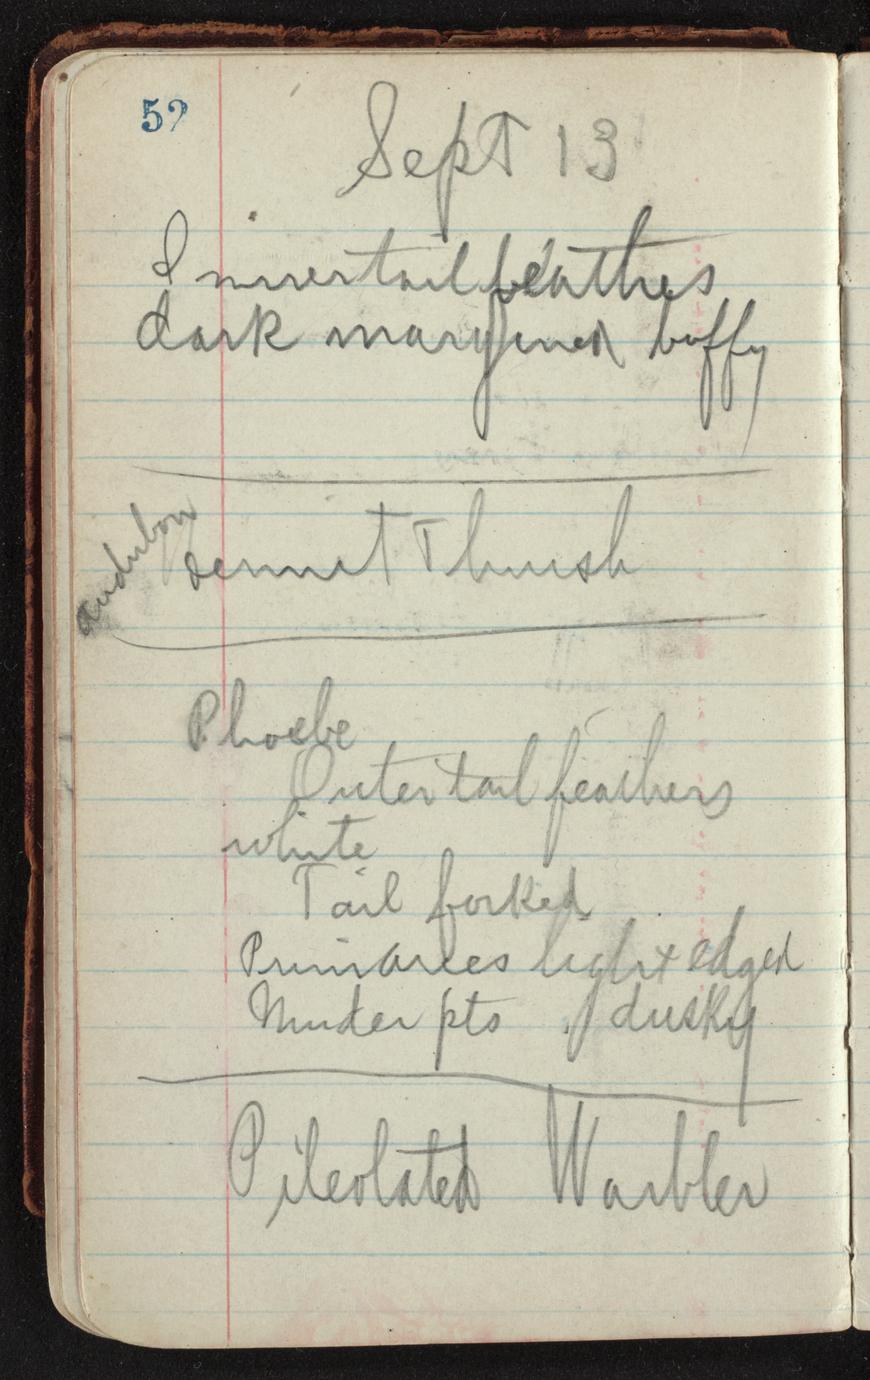 52
Sept 13
Inner tail feathes
dark margined buffy
Audubon
Hermit Thrush
Phoebe
Outer tail feathers
white
Tail forked
Primaries light edged
Under pts dusky
Pileolated Warbler